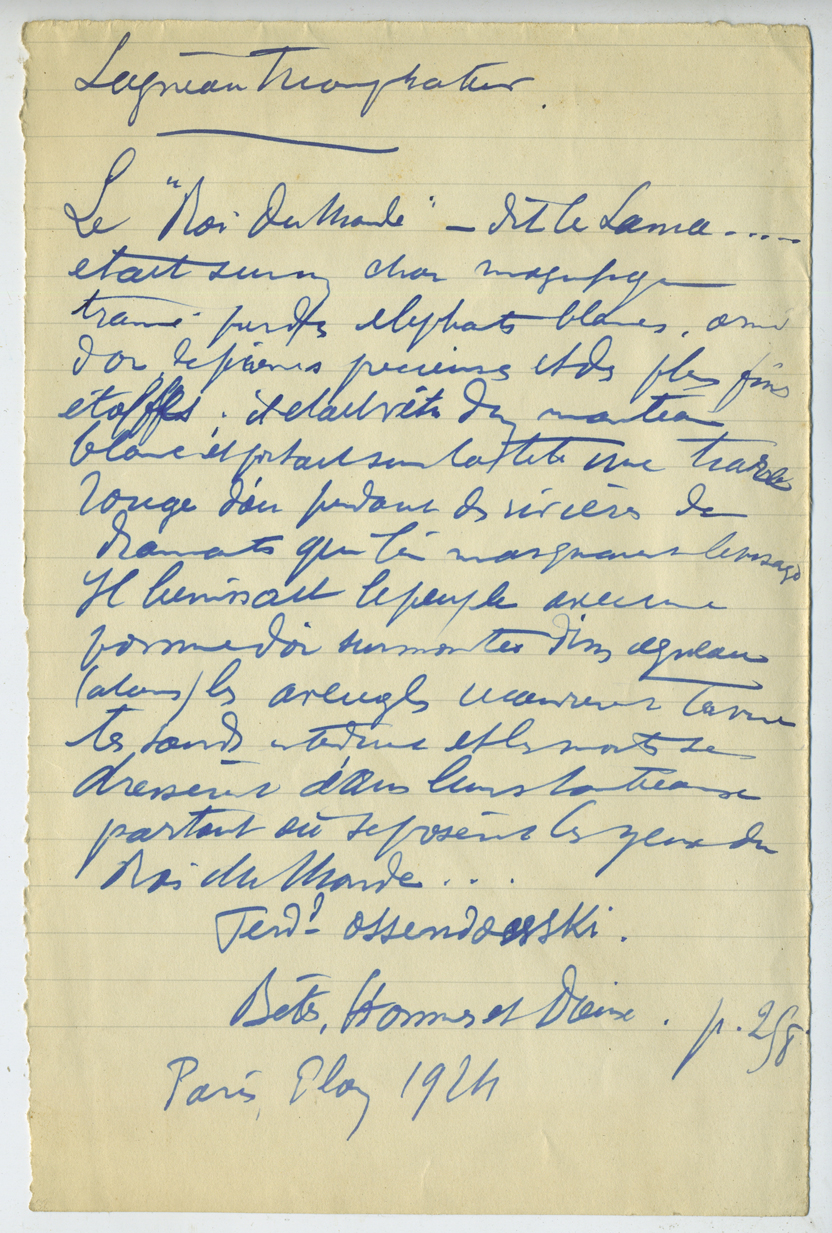 L'agneau triomphateur.
Le "Roi du Monde" – dit le Lama.....
etait sur un char magnifique
trainé par des elephants blancs, orné
d'or, de pierres precieuses et des plus fines
étoffes ; il etait vétu d'un manteau
blanc et portait sur la tete une tiare
rouge d'où pendant des rivières de
diamants qui lui masquaient le visage
Il benissait le peuple avec une
pomme d'or surmontée d'un agneau
(alors) les aveugles
les sourds entendirent et les morts se
dressèrent dans leurs tombeaux
partout où se posèrent les yeux du
Roi du Monde...
Ferd? Ossendowski.
Bêtes, Hommes et Dieux. p. 258
Paris, Plon 1924